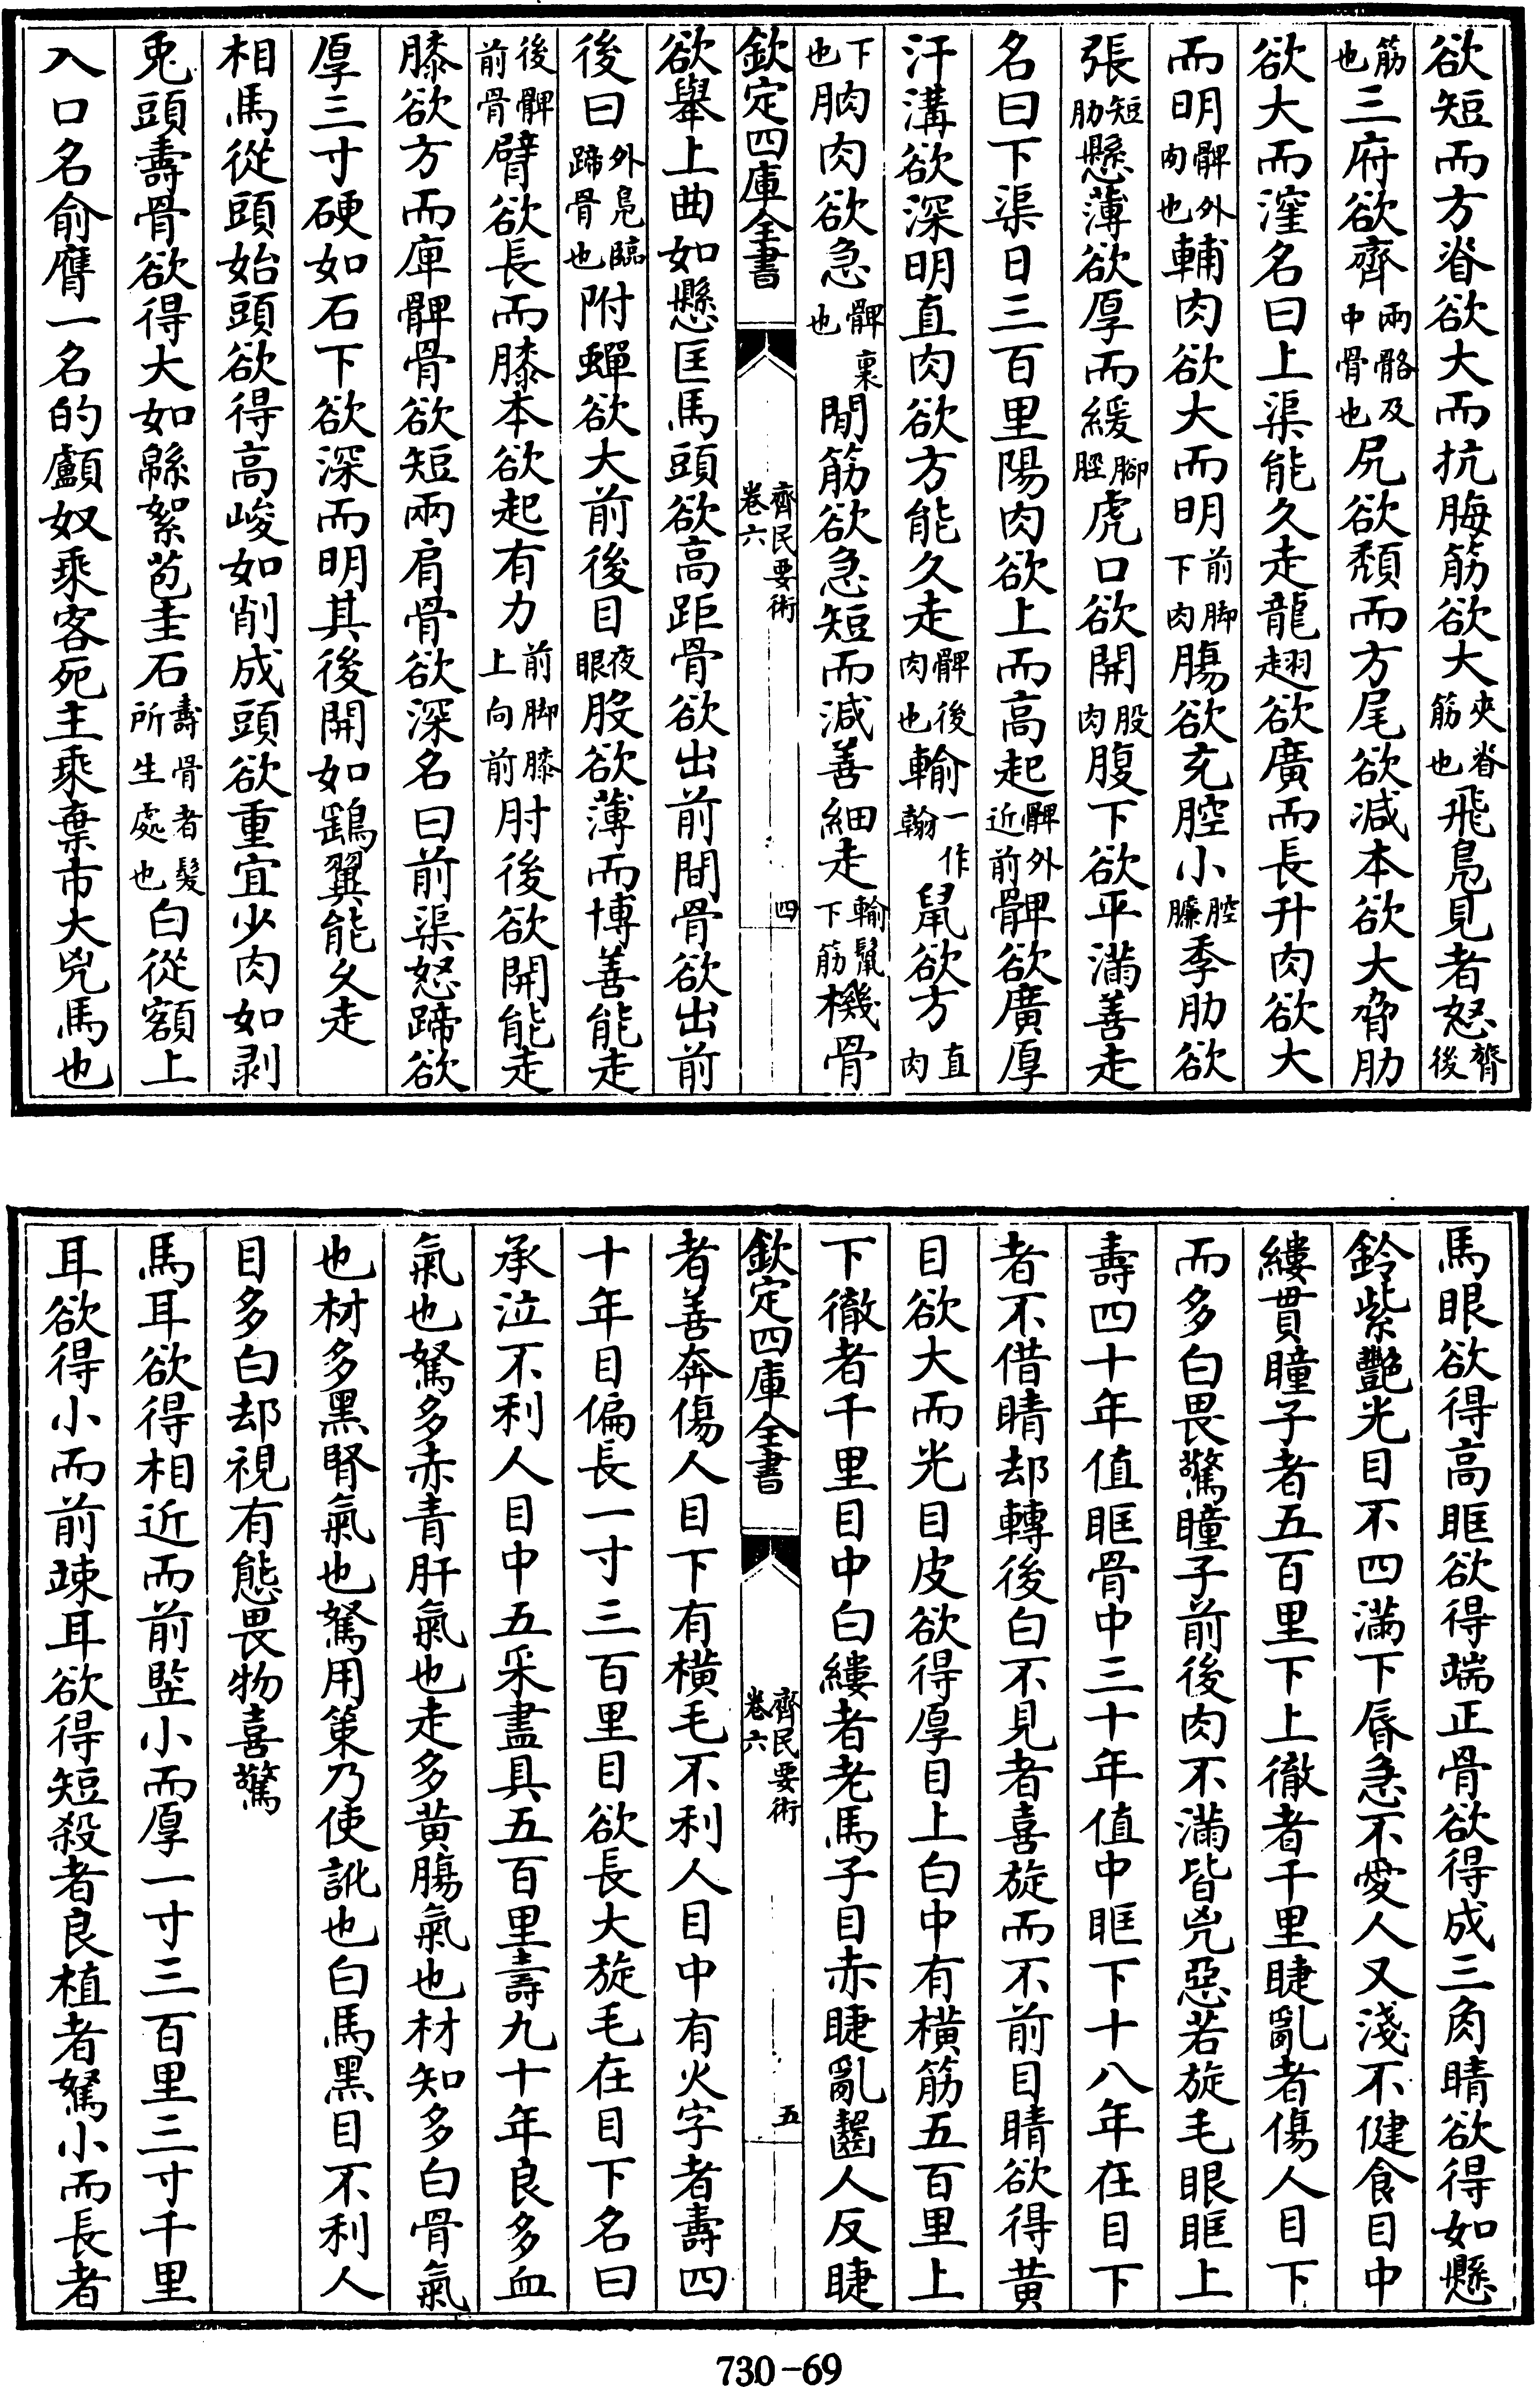 欲短而方脊欲大而抗脢筋欲大夾脊筋也飛鳧見者怒膂後
筋也三府欲齊兩髂及中骨也尻欲頹而方尾欲減本欲大脅肋
欲大而窪名曰上渠能久走龍翅欲廣而長升肉欲大
而明髀外肉也輔肉欲大而明前脚下肉腸欲充腔小腔膁季肋欲
張短肋懸薄欲厚而緩腳脛虎口欲開股肉腹下欲平滿善走
名曰下渠日三百里陽肉欲上而高起髀外近前髀欲廣厚
汗溝欲深明直肉欲方能久走髀後肉也輸一作翰鼠欲方直肉
下也肭肉欲急髀裏也間筋欲急短而減善細走輸鼠下筋機骨
欽定四庫全書
齊民要術
卷六
四
欲舉上曲如懸匡馬頭欲高距骨欲出前間骨欲出前
後曰外鳧臨蹄骨也附蟬欲大前後目夜眼股欲薄而博善能走
後髀前骨臂欲長而膝本欲起有力前脚膝上向前肘後欲開能走
膝欲方而庳髀骨欲短兩肩骨欲深名曰前渠怒蹄欲
厚三寸硬如石下欲深而明其後開如鷂翼能久走
相馬從頭始頭欲得高峻如削成頭欲重宜少肉如剥
兎頭壽骨欲得大如緜絮苞圭石壽骨者髮所生處也白從額上
入口名俞膺一名的顱奴乘客死主乘棄市大兇馬也
馬眼欲得高眶欲得端正骨欲得成三角睛欲得如懸
鈴紫艷光目不四滿下脣急不愛人又淺不健食目中
縷貫瞳子者五百里下上徹者千里睫亂者傷人目下
而多白畏驚瞳子前後肉不滿皆兇惡若旋毛眼眶上
壽四十年值眶骨中三十年值中眶下十八年在目下
者不借睛却轉後白不見者喜旋而不前目睛欲得黄
目欲大而光目皮欲得厚目上白中有横筋五百里上
下徹者千里目中白縷者老馬子目赤睫亂齧人反睫
欽定四庫全書
齊民要術
卷六
五
者善奔傷人目下有横毛不利人目中有火字者壽四
十年目偏長一寸三百里目欲長大旋毛在目下名曰
承泣不利人目中五采盡具五百里壽九十年良多血
氣也駑多赤青肝氣也走多黄腸氣也材知多白骨氣
也材多黑腎氣也駑用策乃使訛也白馬黑目不利人
目多白却視有態畏物喜驚
馬耳欲得相近而前竪小而厚一寸三百里三寸千里
耳欲得小而前竦耳欲得短殺者良植者駑小而長者
730-69